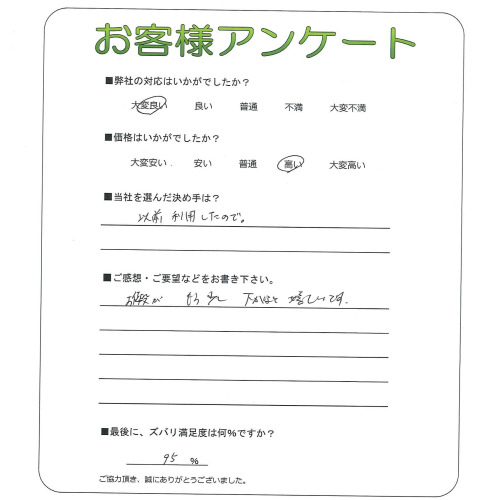 お客様アンケート
■弊社の対応はいかがでしたか？
大変良い 良い 普通 不満 大変不満
■価格はいかがでしたか？
大変安い． 安い 普通 高い 大変高い
■当社を選んだ決め手は？
以前利用したので。
■ご感想・ご要望などをお書き下さい。
お値段がもう少し下がると嬉しいです．
■最後に、ズバリ満足度は何％ですか？
95 ％
ご協力頂き、誠にありがとうございました。